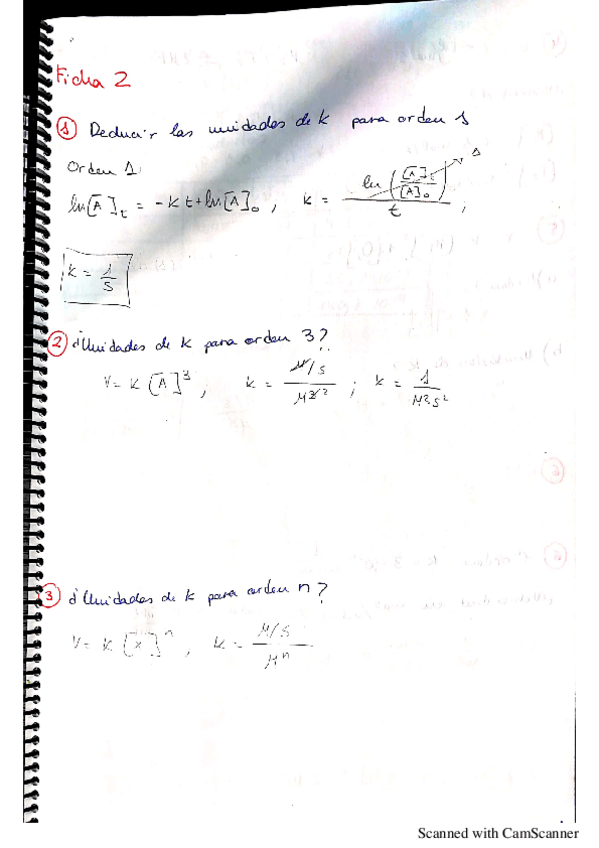 Ficha 2
① Deducir las unidades de k para orden 1
Orden 1:
ln[A]ₜ = -kt+ln[A]₀ , k = ln([A]ₜ/[A]₀)/t ;
k = 1/s
② ¿Unidades de k para orden 3?
V = k [A]³ , k = M/s / M³² ; k = 1/M²s²
③ ¿Unidades de k para orden n?
V = k [x]ⁿ , k = M/s / Mⁿ
Scanned with CamScanner